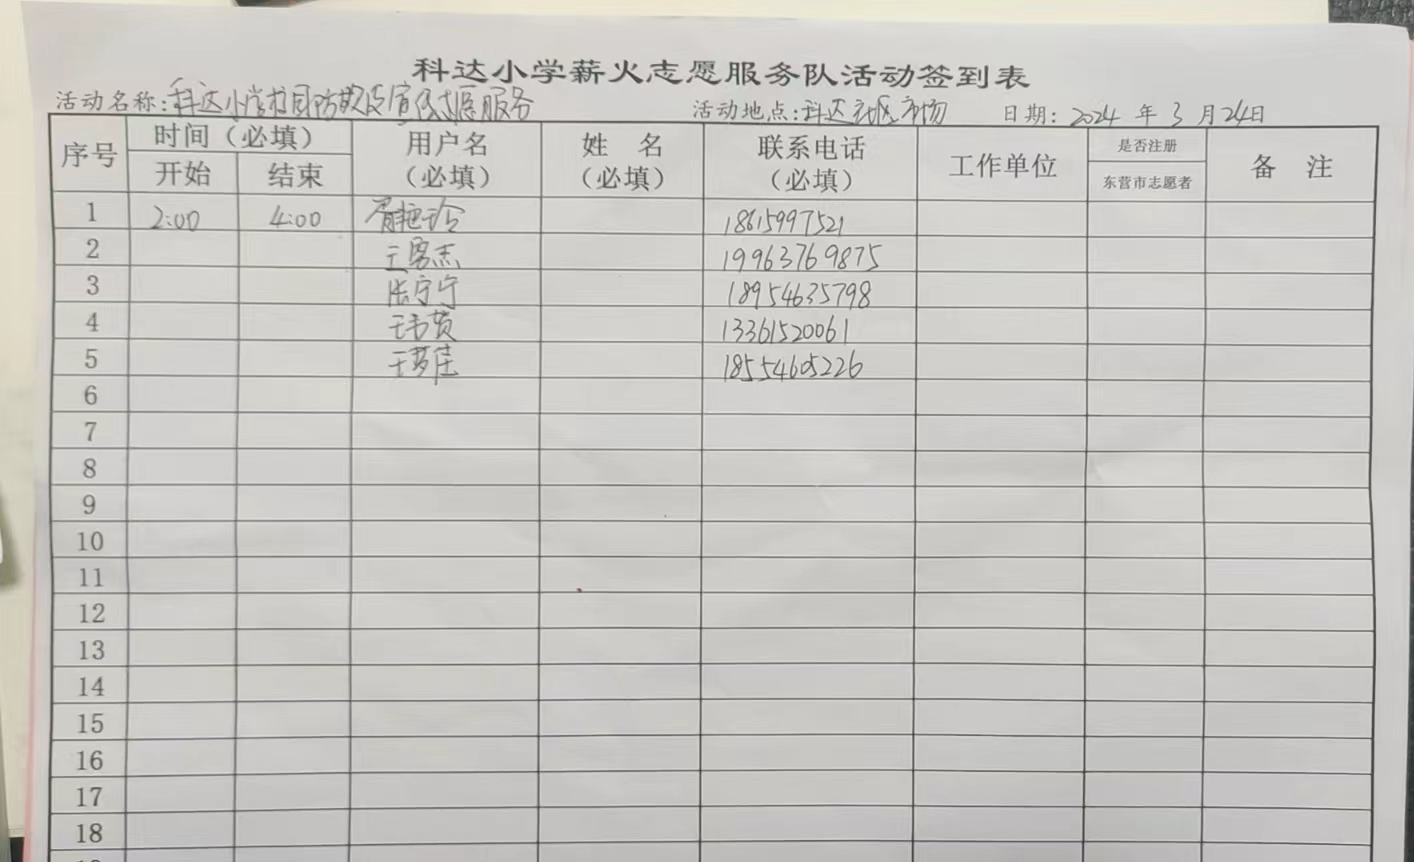 科达小学薪火志愿服务队活动签到表
活动名称:科达小学校园防欺凌宣传志愿服务 活动地点:科达社区广场 日期: 2024 年 3 月 24日
序号 时间（必填） 用户名（必填） 姓 名（必填） 联系电话（必填） 工作单位 是否注册 备 注
开始 结束 东营市志愿者
1 2:00 4:00 18615997521
2 19963769875
3 张宁宁 18954635798
4 13361520061
5 18554605226
6
7
8
9
10
11
12
13
14
15
16
17
18